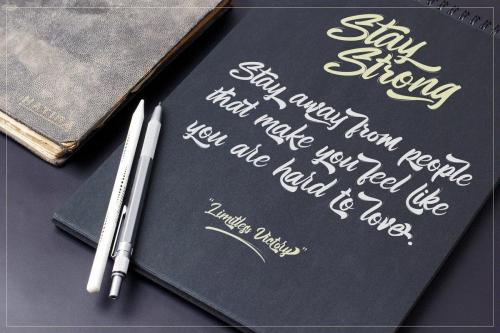 Stay
Strong
Stay away from people
that make you feel like
you are hard to love.
"Limitless Victory"